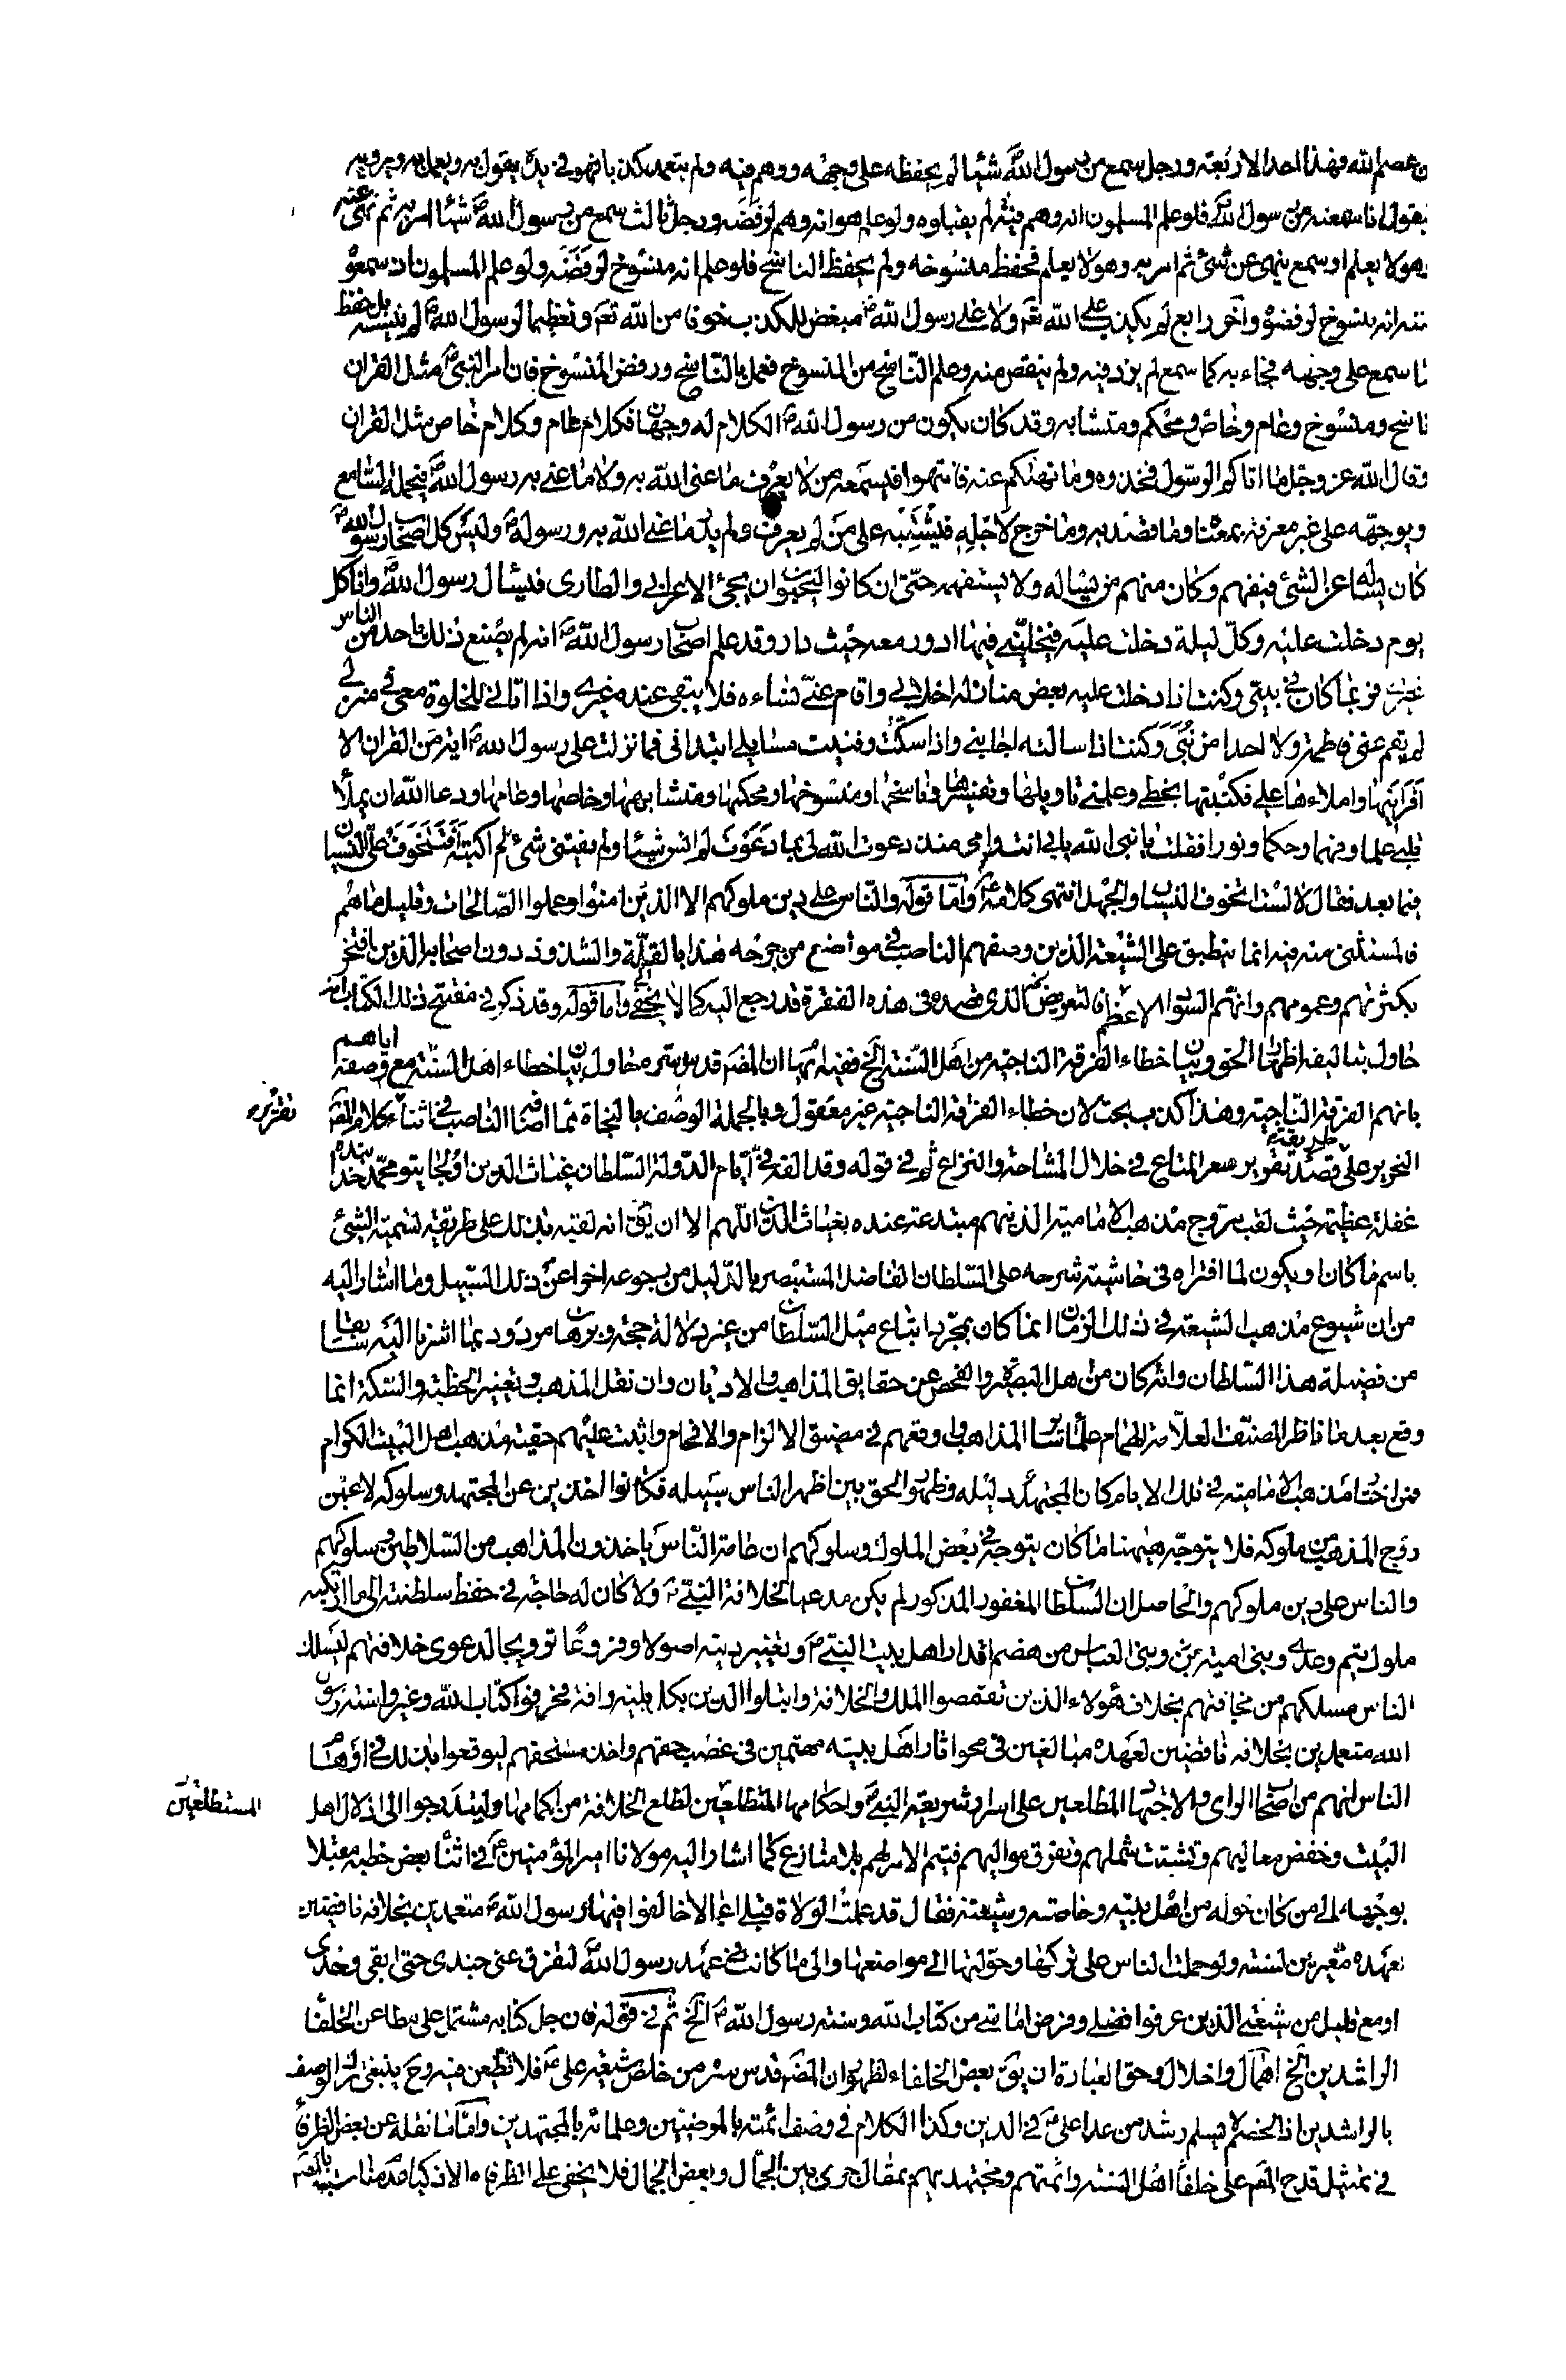 من عصم الله فهذا احد الاربعة ورجل سمع من رسول الله ص شيئا لم يحفظه على وجهه ووهم فيه ولم يتعمد كذبا فهو في يده يقول به ويعمل به ويرويه
يقول انا سمعته من رسول الله ص فلو علم المسلمون انه وهم فيه لم يقبلوه ولو علم هو انه وهم لرفضه ورجل ثالث سمع من رسول الله ص شيئا امر به ثم نهى عنه
وهو لا يعلم او سمع ينهى عن شئ ثم امر به وهو لا يعلم فحفظ منسوخه ولم يحفظ الناسخ فلو علم انه منسوخ لرفضه ولو علم المسلمون اذ سمعوه
منه انه منسوخ لرفضوه وآخر رابع لم يكذب على الله تع ولا على رسول الله ص مبغض للكذب خوفا من الله تع وتعظيما لرسول الله ص لم ينسه بل حفظ
ما سمع على وجهه فجاء به كما سمع لم يزد فيه ولم ينقص منه وعلم الناسخ من المنسوخ فعمل بالناسخ ورفض المنسوخ فان امر النبي ص مثل القران
ناسخ ومنسوخ وعام وخاص ومحكم ومتشابه وقد كان يكون من رسول الله ص الكلام له وجهان فكلام عام وكلام خاص مثل القران
وقال الله عز وجل ما اتاكم الرسول فخذوه وما نهيكم عنه فانتهوا فيسمعه من لا يعرف ما عنى الله به ولا ما عنى به رسول الله ص فيحمله السامع
ويوجهه على غير معرفة بمعناه وما قصد به وما خرج لاجله فيشتبه على من لم يعرف ولم يدر ما عنى الله به ورسوله ص وليس كل اصحاب رسول الله ص
كان يسأله عن الشئ فيفهم وكان منهم من يسأله ولا يستفهمه حتى ان كانوا ليحبون ان يجئ الاعرابي والطارى فيسال رسول الله ص وانا كل
يوم دخلت عليه وكل ليلة دخلت عليه فيخليني فيها ادور معه حيث دار وقد علم اصحاب رسول الله ص انه لم يصنع ذلك باحد من الناس
غيري فربما كان في بيتي وكنت اذا دخلت عليه بعض منازله اخلاني واقام عني نساءه فلا يبقى عنده غيري واذا اتاني للخلوة معي في منزلي
لم يقم عني فاطمة ولا احدا من بني وكنت اذا سالته اجابني واذا سكت وفنيت مسايلي ابتداني فما نزلت على رسول الله ص اية من القران الا
اقرأنيها واملاءها علي فكتبتها بخطي وعلمني تاويلها وتفسيرها وناسخها ومنسوخها ومحكمها ومتشابهها وخاصها وعامها ودعا الله ان يملأ
قلبي علما وفهما وحكما ونورا فقلت يا نبي الله بابي انت وامي منذ دعوت الله لي بما دعوت لم انس شيئا ولم يفتني شئ لم اكتبه أفتتخوف علي النسيان
فيما بعد فقال لا لست اتخوف النسيان والجهل انتهى كلامه ع واما قوله والناس على دين ملوكهم الا الذين امنوا وعملوا الصالحات وقليل ما هم
فالمستثنى منه فيه انما ينطبق على الشيعة الذين وصفهم الناصب في مواضع من جرحه هذا بالقلة والشذوذ دون اصحابه الذين افتخر
بكثرتهم وعمومهم وانهم السواد الاعظم فالتعريض الذي قصده في هذه الفقرة قد رجع اليه كما لا يخفى واما قوله وقد ذكر في مفتتح ذلك الكتاب انه
حاول بتاليفه اظهار الحق وبيان خطاء الفرقة الناجية من اهل السنة الخ ففيه ايهام ان المص قدس سره حاول بيان خطاء اهل السنة مع وصفه اياهم
بانهم الفرقة الناجية وهذا كذب بحت لان خطاء الفرقة الناجية غير معقول وبالجملة الوصف بالنجاة مما اضافه الناصب في اثناء تقرير كلام المص
النحرير على طريقة قصد تقرير سعر المتاع في خلال المشاحة والنزاع ثم في قوله وقد الفه في ايام الدولة السلطان غياث الدين اولجايتو محمد خدابنده
غفلة عظيمة حيث لقب مروج مذهب الامامية الذينهم مبتدعة عنده بغياث الدين اللهم الا ان يق انه لقبه بذلك على طريقة تسمية الشئ
باسم ما كان او يكون لما افتراه في حاشية شرحه على السلطان الفاضل المستبصر بالدليل من رجوعه اخرا عن ذلك السبيل وما اشار اليه
من ان شيوع مذهب الشيعة في ذلك الزمان انما كان بمجرد اتباع ميل السلطان من غير دلالة حجة وبرهان مردود بما اشرنا اليه سابقا
من فضيلة هذا السلطان وانه كان من اهل البصيرة والفحص عن حقايق المذاهب والاديان وان نقل المذهب وتغيير الخطبة والسكة انما
وقع بعد ما ناظر المصنف العلامة الهمام علماء ساير المذاهب واوقعهم في مضيق الالزام والافحام واثبت عليهم حقية مذهب اهل البيت الكرام
فمن اختار مذهب الامامية في تلك الايام كان المجتهد دليله وظهور الحق بين اظهر الناس سبيله فكانوا اخذين عن المجتهد وسلوكه لا عن
روج المذهب من ملوكه فلا يتوجه هيهنا ما كان يتوجه في بعض الملوك وسلوكهم ان عامة الناس ياخذون المذاهب من السلاطين وسلوكهم
والناس على دين ملوكهم والحاصل ان السلطان المغفور المذكور لم يكن مدعيا لخلافة النبي ص ولا كان له حاجة في حفظ سلطنته الى ما ارتكبه
ملوك تيم وعدي وبني امية وبني العباس من هضم اقدار اهل بيت النبي ص وتغيير دينه اصولا وفروعا ترويجا لدعوى خلافتهم ليسلك
الناس مسلكهم من مخافتهم بخلاف هؤلاء الذين تقمصوا الملك والخلافة وابتلوا الدين بكل بلية وافة فحرفوا كتاب الله وغيروا سنة رسول
الله متعمدين بخلافه ناقضين لعهده مبالغين في محو اثار اهل بيته مهتمين في غصب حقهم واخذ مستحقهم ليوقعوا بذلك في اوهام
الناس انهم من اصحاب الراي والاجتهاد المطلعين على اسرار شريعة النبي ص واحكامها المستطلعين لطلع الخلافة من اكمامها وليتدرجوا الى اذلال اهل
البيت وخفض معاليهم وتشتت شملهم وتفرق مواليهم فيتم الامر لهم بلا منازع كما اشار اليه مولانا امير المؤمنين ع في اثناء بعض خطبه مقبلا
بوجهه الى من كان حوله من اهل بيته وخاصته وشيعته فقال قد عملت الولاة قبلي اعمالا خالفوا فيها رسول الله ص متعمدين بخلافه ناقضين
لعهده مغيرين لسنته ولو حملت الناس على تركها وحولتها الى مواضعها والى ما كانت في عهد رسول الله ص لتفرق عني جندي حتى ابقى وحدي
او مع قليل من شيعتي الذين عرفوا فضلي وفرض امامتي من كتاب الله وسنة رسول الله ص الخ ثم في قوله ان جل كتابه مشتمل على مطاعن الخلفاء
الراشدين الخ اهمال واخلال وحق العبارة ان يق بعض الخلفاء لظهور ان المص قدس سره من خلص شيعة علي ع فلا تطعن فيه وح ينبغي ترك الوصف
بالراشدين اذ الخصم لا يسلم رشد من عدا علي ع في الدين وكذا الكلام في وصف ائمته بالمرضيين وعلمائه بالمجتهدين واما ما نقله عن بعض الظرفاء
في تمثيل قدح المص على خلفاء اهل السنة وائمتهم ومجتهديهم بمقال جرى بين الجمال وبعض الجمال فلا يخفى على